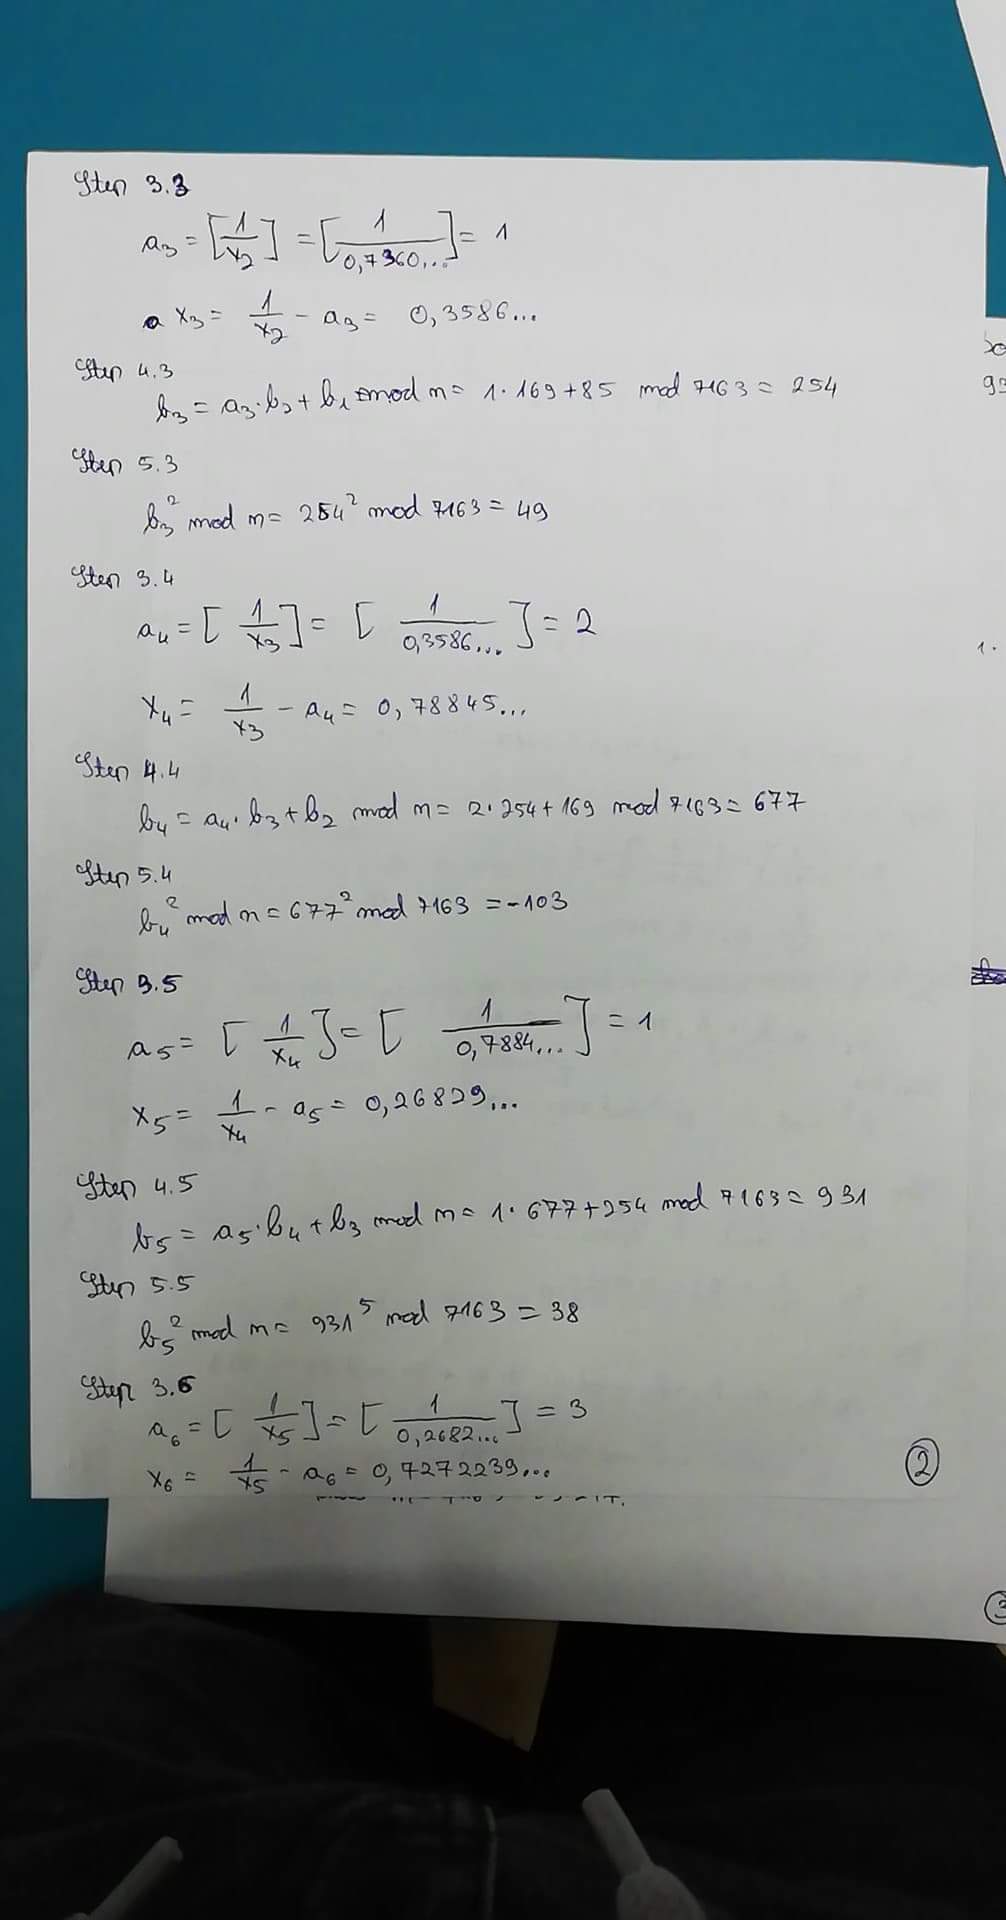 Step 3.3
a₃ = [1/x₂] = [1/0,7360...] = 1
x₃ = 1/x₂ - a₃ = 0,3586...
Step 4.3
b₃ = a₃·b₂ + b₁ mod n = 1·169+85 mod 7163 = 254
Step 5.3
b₃² mod n = 254² mod 7163 = 49
Step 3.4
a₄ = [1/x₃] = [1/0,3586...] = 2
x₄ = 1/x₃ - a₄ = 0,78845...
Step 4.4
b₄ = a₄·b₃+b₂ mod n = 2·254+169 mod 7163 = 677
Step 5.4
b₄² mod n = 677² mod 7163 = -103
Step 3.5
a₅ = [1/x₄] = [1/0,7884...] = 1
x₅ = 1/x₄ - a₅ = 0,26829...
Step 4.5
b₅ = a₅·b₄+b₃ mod n = 1·677+254 mod 7163 = 931
Step 5.5
b₅² mod n = 931⁵ mod 7163 = 38
Step 3.6
a₆ = [1/x₅] = [1/0,2682...] = 3
x₆ = 1/x₅ - a₆ = 0,7272239...
2
93
1.
3